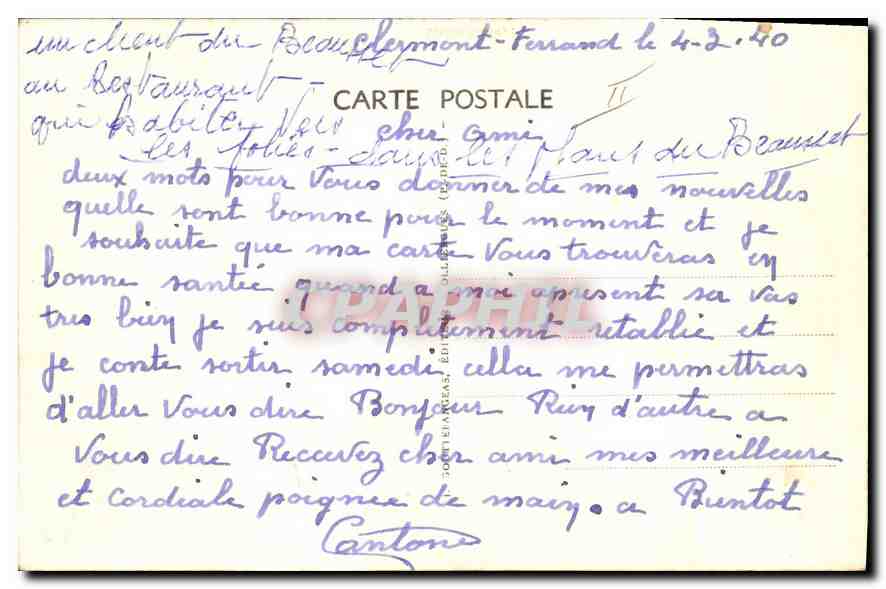 un client du Beausset
au Restaurant -
qui habiter Vers
les folies - dans les Maur du Beausset
Clermont-Ferrand le 4-3.40
CARTE POSTALE
II
cher ami
deux mots pour Vous donner de mes nouvelles
quelle sont bonne pour le moment et je
souhaite que ma carte Vous trouveras en
bonne santée quand a moi apresent sa vas
tres bien je suis completement retablie et
je conte sortir samedi cella me permettras
d'aller Vous dire Bonjour Rien d'autre a
Vous dire Recevez cher ami mes meilleure
et cordiale poignee de main. a Bientot
Cantone
CPAPHIL